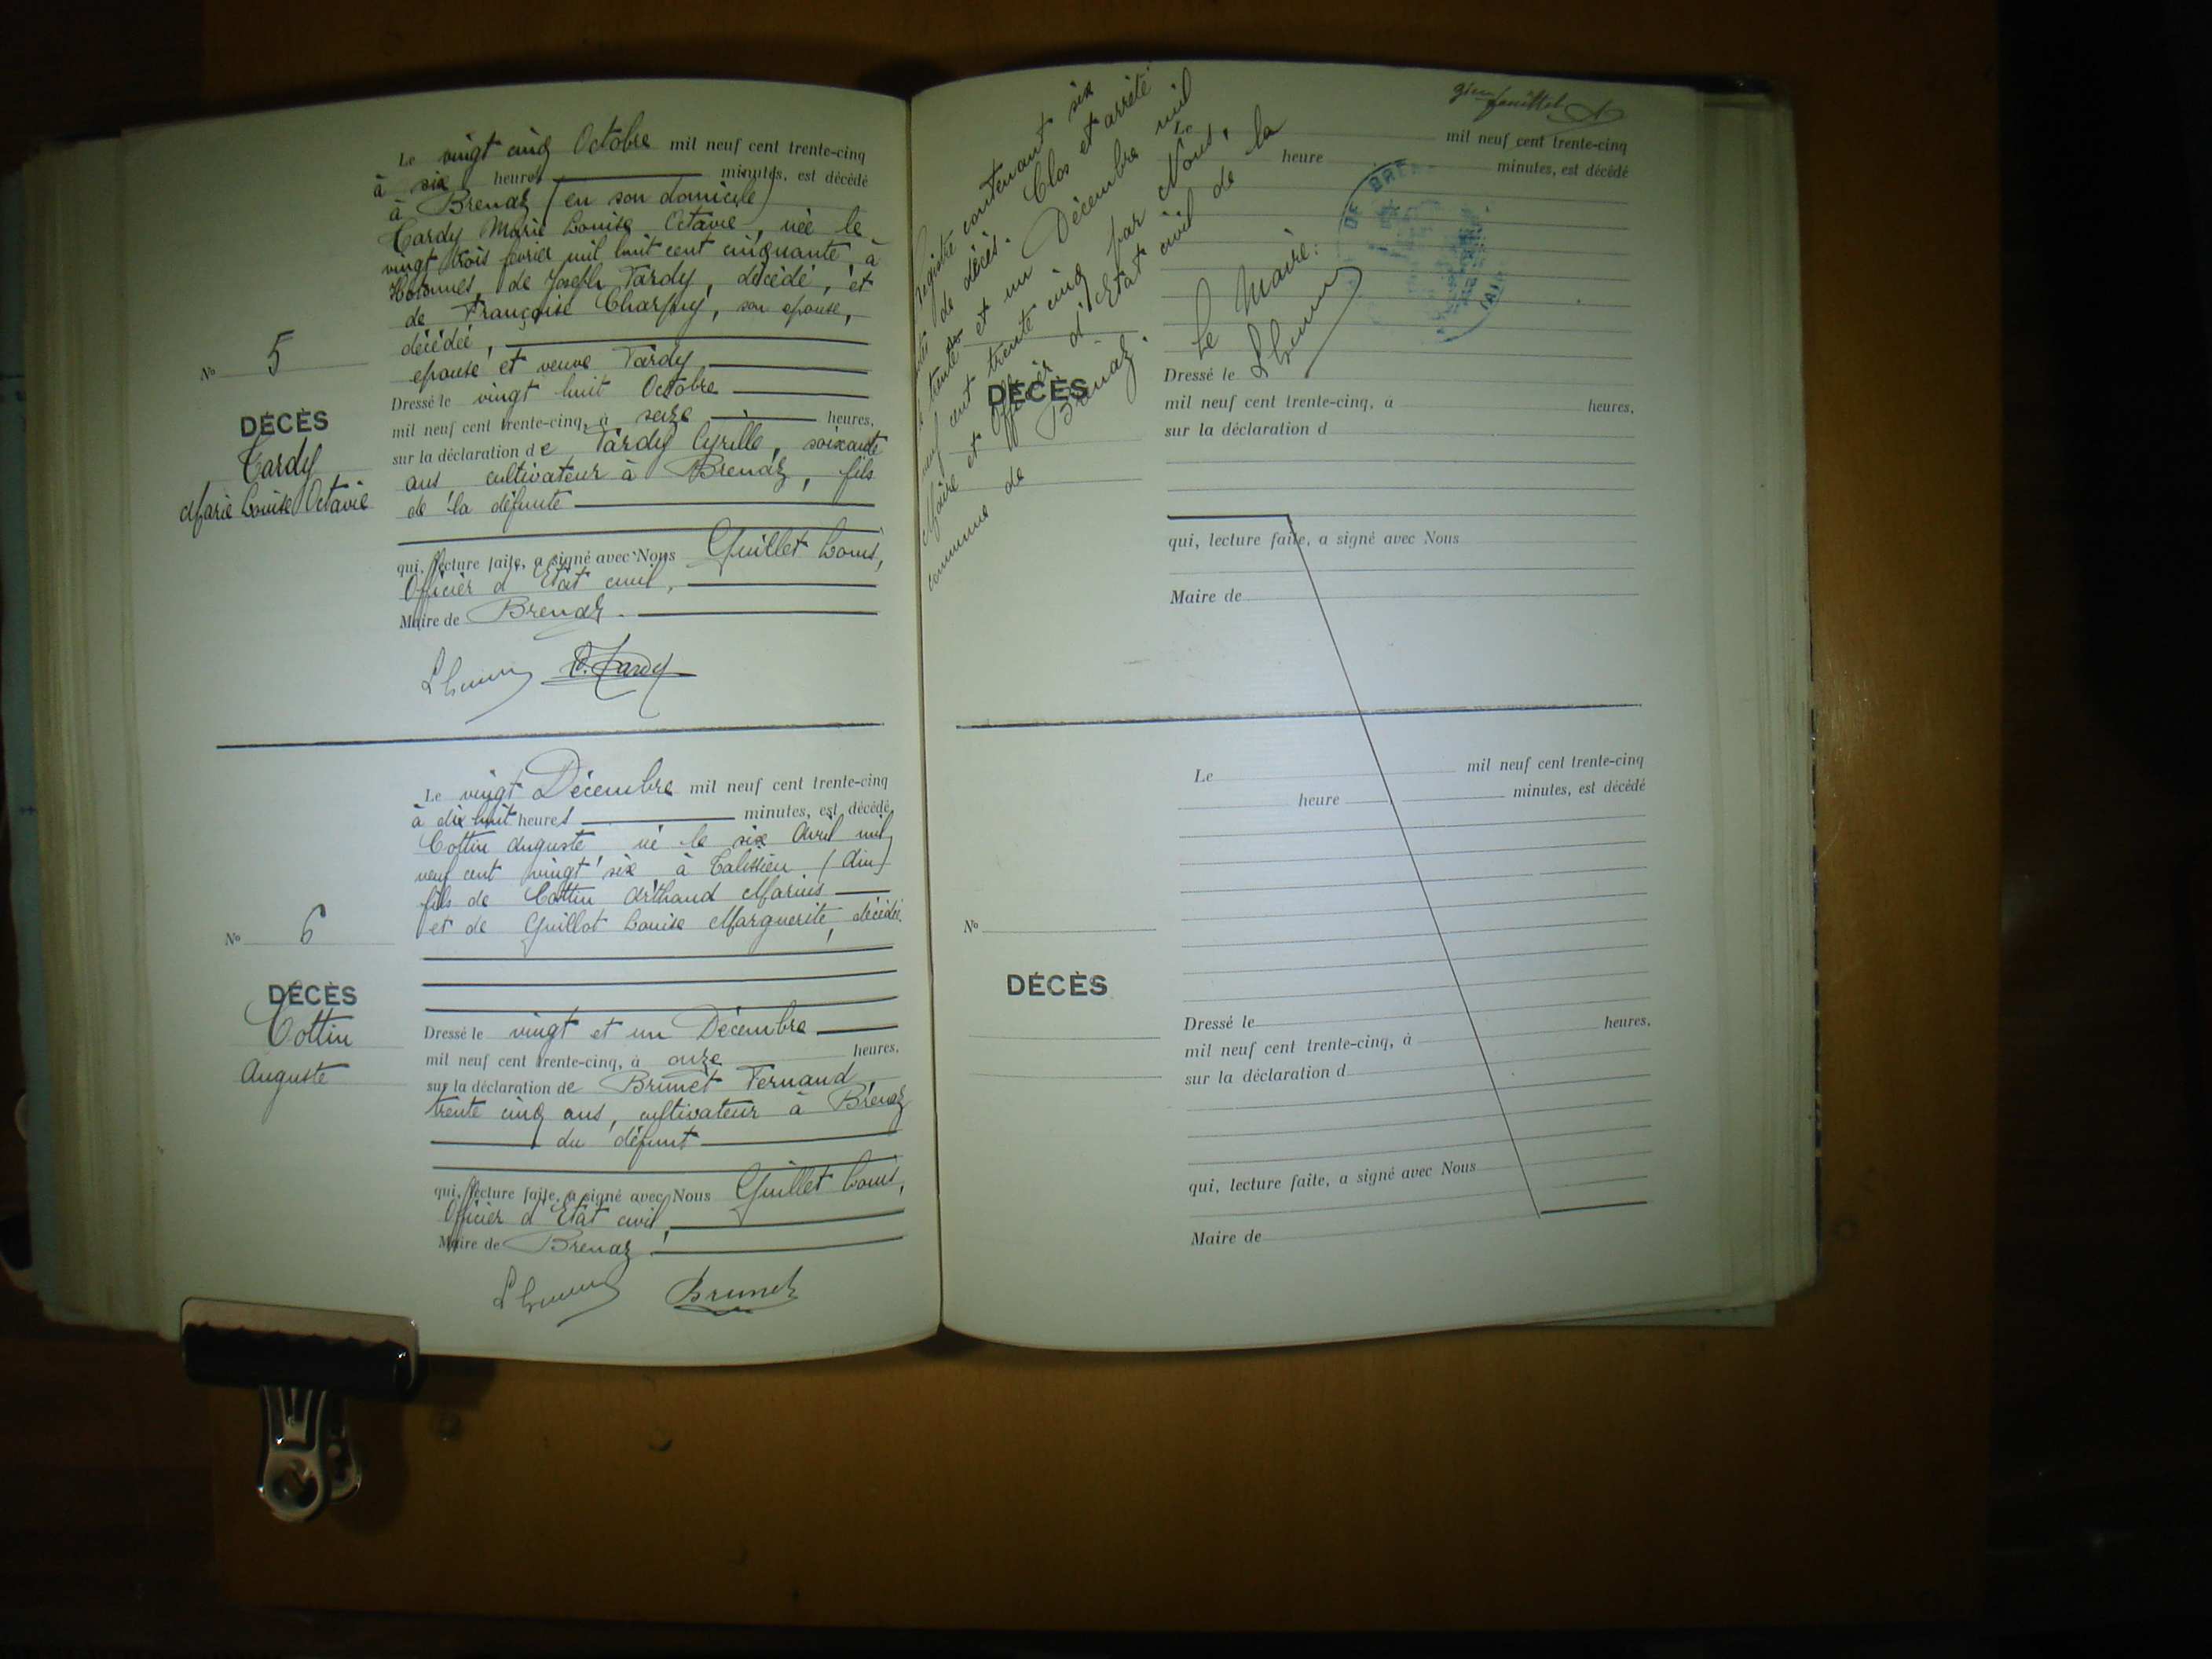 Le vingt cinq Octobre mil neuf cent trente-cinq
à six heures minutes, est décédé
à Brenaz (en son domicile)
Tardy Marie Louise Octavie, née le
vingt trois février mil huit cent cinquante, à
Hotonnes, de Joseph Tardy, décédé, et
de Françoise Charpy, son épouse,
décédée,
épouse et veuve Tardy
Dressé le vingt huit Octobre
mil neuf cent trente-cinq, à seize heures,
sur la déclaration de Tardy Cyrille, soixante
ans cultivateur à Brenaz, fils
de la défunte
qui, lecture faite, a signé avec Nous Guillet Louis,
Officier d'Etat civil,
Maire de Brenaz.
C. Tardy
No 5
DÉCÈS
Tardy
Marie Louise Octavie
Le vingt Décembre mil neuf cent trente-cinq
à dix huit heures minutes, est décédé
Cottin Auguste né le six Avril mil
neuf cent vingt six à Talissieu (Ain)
fils de Cottin Arthaud Marius
et de Guillot Louise Marguerite, décédée.
Dressé le vingt et un Décembre
mil neuf cent trente-cinq, à onze heures,
sur la déclaration de Brunet Fernand
trente cinq ans, cultivateur à Brénaz
du défunt
qui, lecture faite, a signé avec Nous Guillet Louis,
Officier d'Etat civil,
Maire de Brenaz.
Brunet
No 6
DÉCÈS
Cottin
Auguste
feuillet
registre contenant six
de décès. Clos et arrêté
le trente et un Décembre mil
neuf cent trente cinq par Nous,
Maire et Officier d'Etat civil de la
commune de Brénaz.
Le Maire:
Le mil neuf cent trente-cinq
heure minutes, est décédé
DÉCÈS
Dressé le
mil neuf cent trente-cinq, à heures,
sur la déclaration d
qui, lecture faite, a signé avec Nous
Maire de
Le mil neuf cent trente-cinq
heure minutes, est décédé
No
DÉCÈS
Dressé le
mil neuf cent trente-cinq, à heures,
sur la déclaration d
qui, lecture faite, a signé avec Nous
Maire de